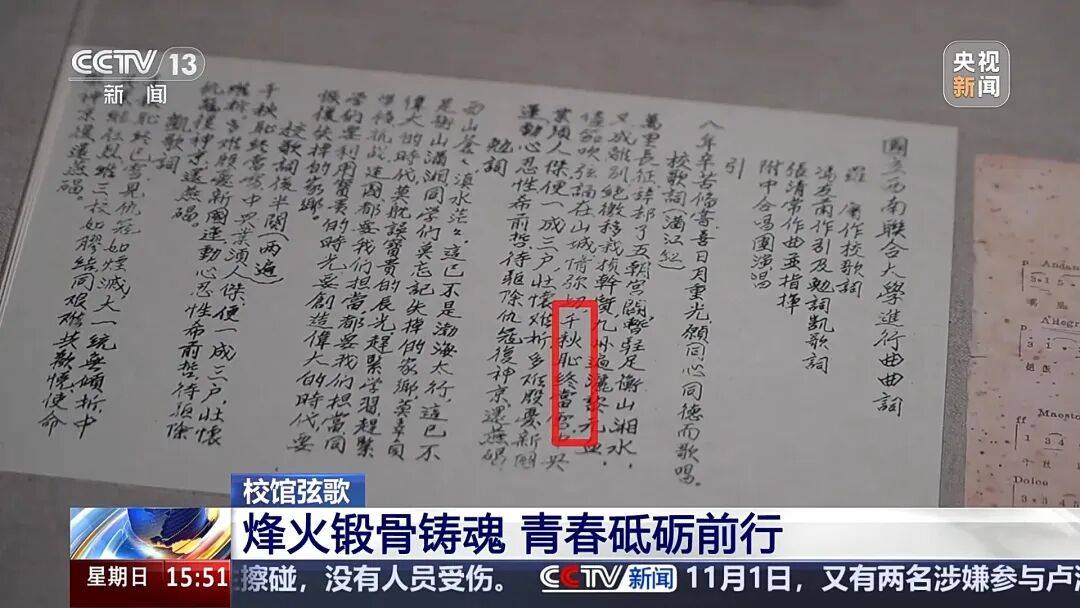 CCTV 13
新闻
央视
新闻
國立西南聯合大學進行曲曲詞
羅庸作校歌詞
馮友蘭作引及勉詞凱歌詞
張清常作曲並指揮
附中合唱團演唱
引
八年辛苦備嘗喜日月重光願同心同德而歌唱。
校歌詞(滿江紅)
萬里長征辭却了五朝宮闕暫駐足衡山湘水，
又成離別絕徼移栽楨幹質九州遍灑黎元血，
儘笳吹弦誦在山城情彌切千秋恥終當雪中興
業須人傑便一成三户壯懷難折多難殷憂新國
運動心忍性希前哲待驅除仇寇復神京還燕碣
勉詞
西山蒼々滇水茫々這已不是渤海太行，這已不
是衡山瀟湘同學們莫忘記失掉的家鄉，莫辜負
偉大的時代莫耽誤寶貴的辰光趕緊學習趕緊
準備抗戰建國都要我們担當都要我們担當同
學們要利用寶貴的時光要創造偉大的時代要
恢復失掉的家鄉。
校歌詞後半闋(两遍)
千秋恥終當雪中興業須人傑便一成三户壯懷
難折多難殷憂新國運動心忍性希前哲待驅除
仇寇復神京還燕碣。
凱歌詞
恥終已雪見仇寇如煙滅大一統無傾折中
業繼往烈維三校如膠結同艱難共歡悅使命
神京復還燕碣。
p Andan
Allegr
ff Maesto
Dolce
校馆弦歌
烽火锻骨铸魂 青春砥砺前行
星期日 15:51
擦碰，没有人员受伤。 CCTV新闻 11月1日，又有两名涉嫌参与卢